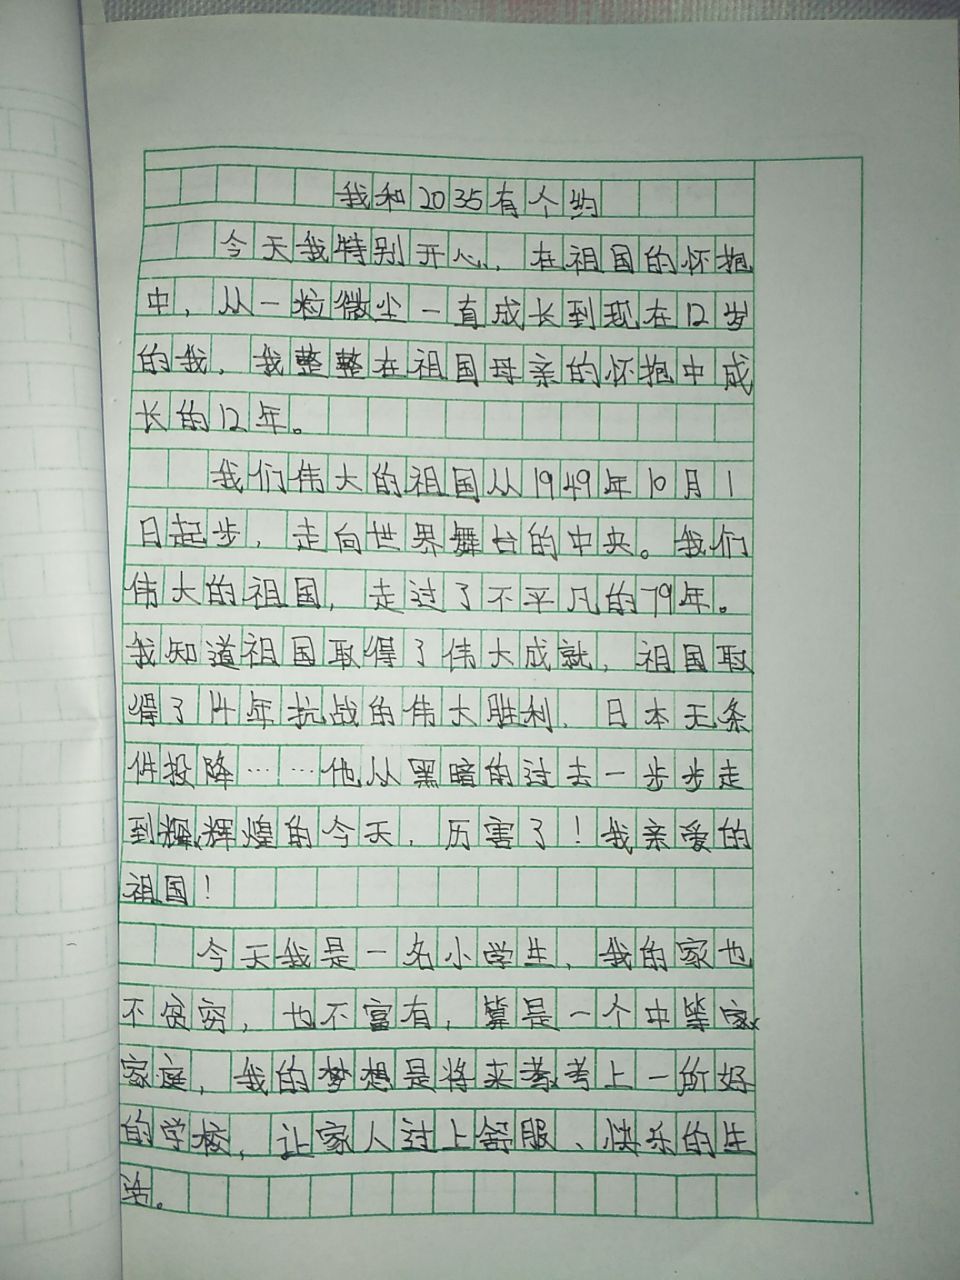 我和2035有个约
今天我特别开心，在祖国的怀抱
中，从一粒微尘一直成长到现在12岁
的我，我整整在祖国母亲的怀抱中成
长的12年。
我们伟大的祖国从1949年10月1
日起步，走向世界舞台的中央。我们
伟大的祖国，走过了不平凡的79年。
我知道祖国取得了伟大成就，祖国取
得了14年抗战的伟大胜利，日本无条
件投降……他从黑暗的过去一步步走
到辉煌的今天，厉害了！我亲爱的
祖国！
今天我是一名小学生，我的家也
不贫穷，也不富有，算是一个中等
家庭，我的梦想是将来考上一所好
的学校，让家人过上舒服、快乐的生
活。